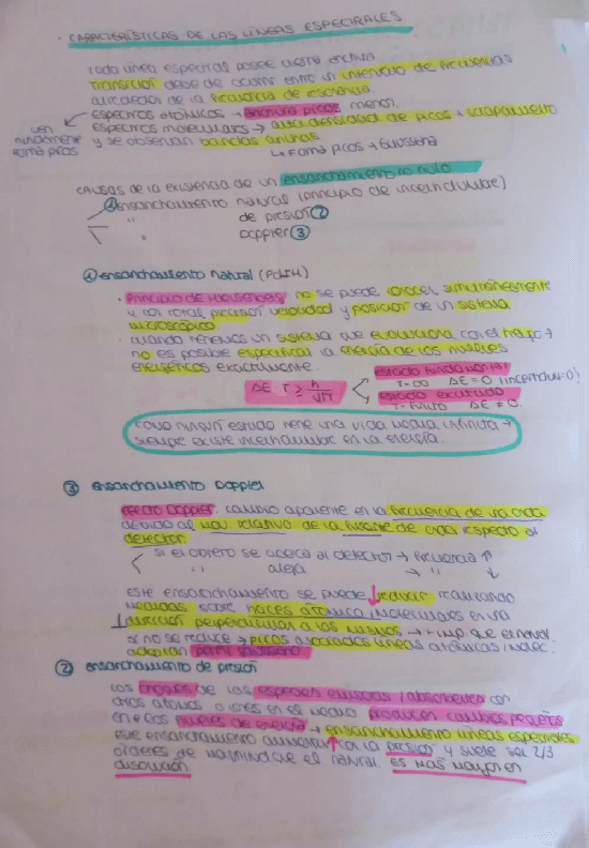 · CARACTERÍSTICAS DE LAS LÍNEAS ESPECTRALES
Toda línea espectral posee cierta anchura
transición debe de ocurrir entre un intervalo de frecuencias
alrededor de la frecuencia de resonancia.
espectros atómicos → anchura picos menor.
ven espectros moleculares → alta densidad de picos + solapamiento
y se observan bandas anchas
forma picos
↳ Forma picos → Gaussiana
CAUSAS de la existencia de un ensanchamiento no nulo
① ensanchamiento natural (principio de incertidumbre)
" de presión ②
" Doppler ③
① ensanchamiento natural
· Principio de Heisenberg: no se puede conocer simultáneamente
y con total precisión velocidad y posición de un sistema
microscópico.
· cuando tenemos un sistema que evoluciona con el tiempo →
no es posible especificar la energía de los niveles
energéticos exactamente.
estado fundamental
ΔE · τ ≥ τ = ∞ ΔE = 0 (incertidum = 0)
estado excitado
τ = finito ΔE ≠ 0.
como ningún estado tiene una vida media infinita →
siempre existe incertidumbre en la energía.
③ ensanchamiento Doppler
efecto Doppler: cambio aparente en la frecuencia de una onda
debido al mov. relativo de la fuente de onda respecto al
detector.
si el objeto se acerca al detector → frecuencia ↑
" aleja → " ↓
este ensanchamiento se puede ↓ reducir realizando
medidas sobre haces atómicos/moleculares en una
dirección perpendicular a los mismos → + imp que el natural
si no se reduce → picos asociados líneas atómicas/molec.
adoptan perfil gaussiano
② ensanchamiento de presión
Los choques de las especies emisoras/absorbentes con
otros átomos o iones en el medio producen cambios pequeños
en esos niveles de energía → ensanchamiento líneas espectrales
este ensanchamiento aumenta ↑ con la presión y suele ser 2/3
órdenes de magnitud que el natural. es más mayor en
disolución